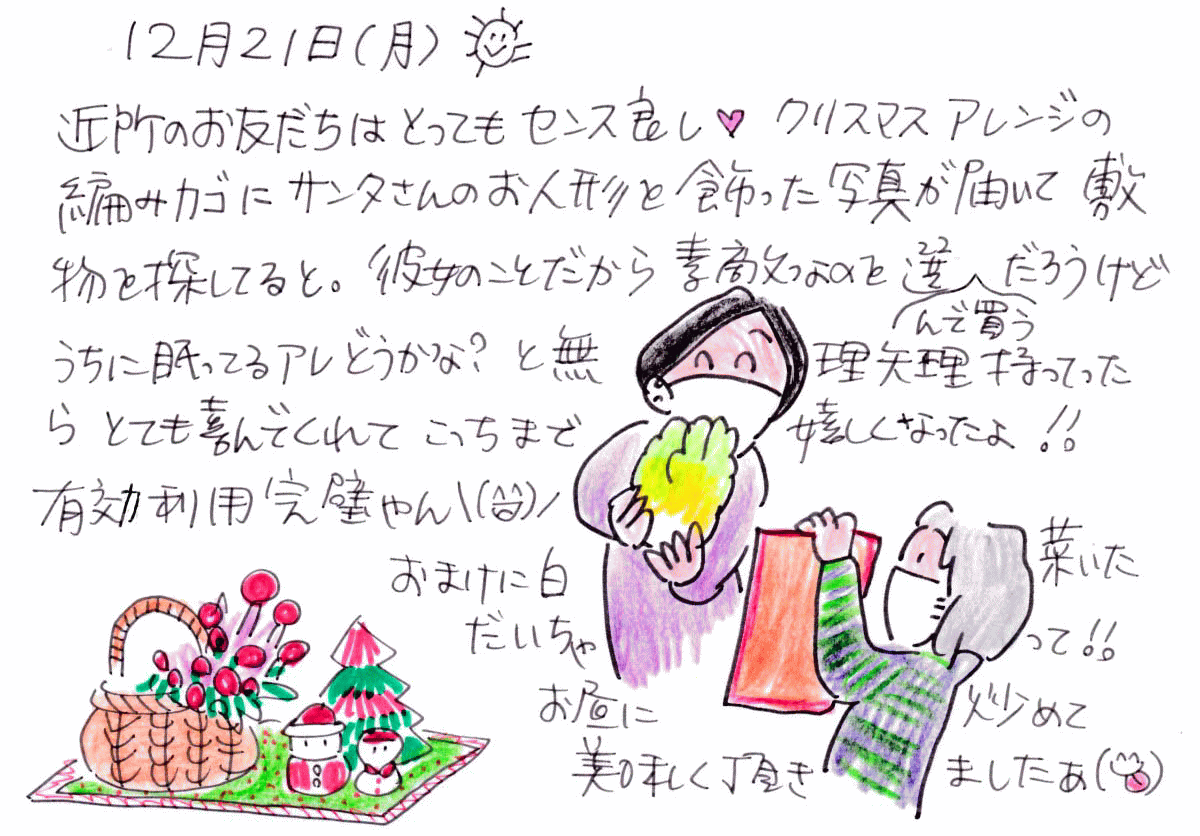 12月21日(月)
近所のお友だちはとってもセンス良し♥ クリスマスアレンジの
編みカゴにサンタさんのお人形を飾った写真が届いて敷
物を探してると。彼女のことだから素敵なのを選んで買うだろうけど
うちに眠ってるアレどうかな?と無理矢理持ってった
らとても喜んでくれてこっちまで嬉しくなったよ!!
有効利用完璧やん\(^^)/
おまけに白菜いた
だいちゃって!!
お昼に炒めて
美味しく頂きましたぁ(^^)